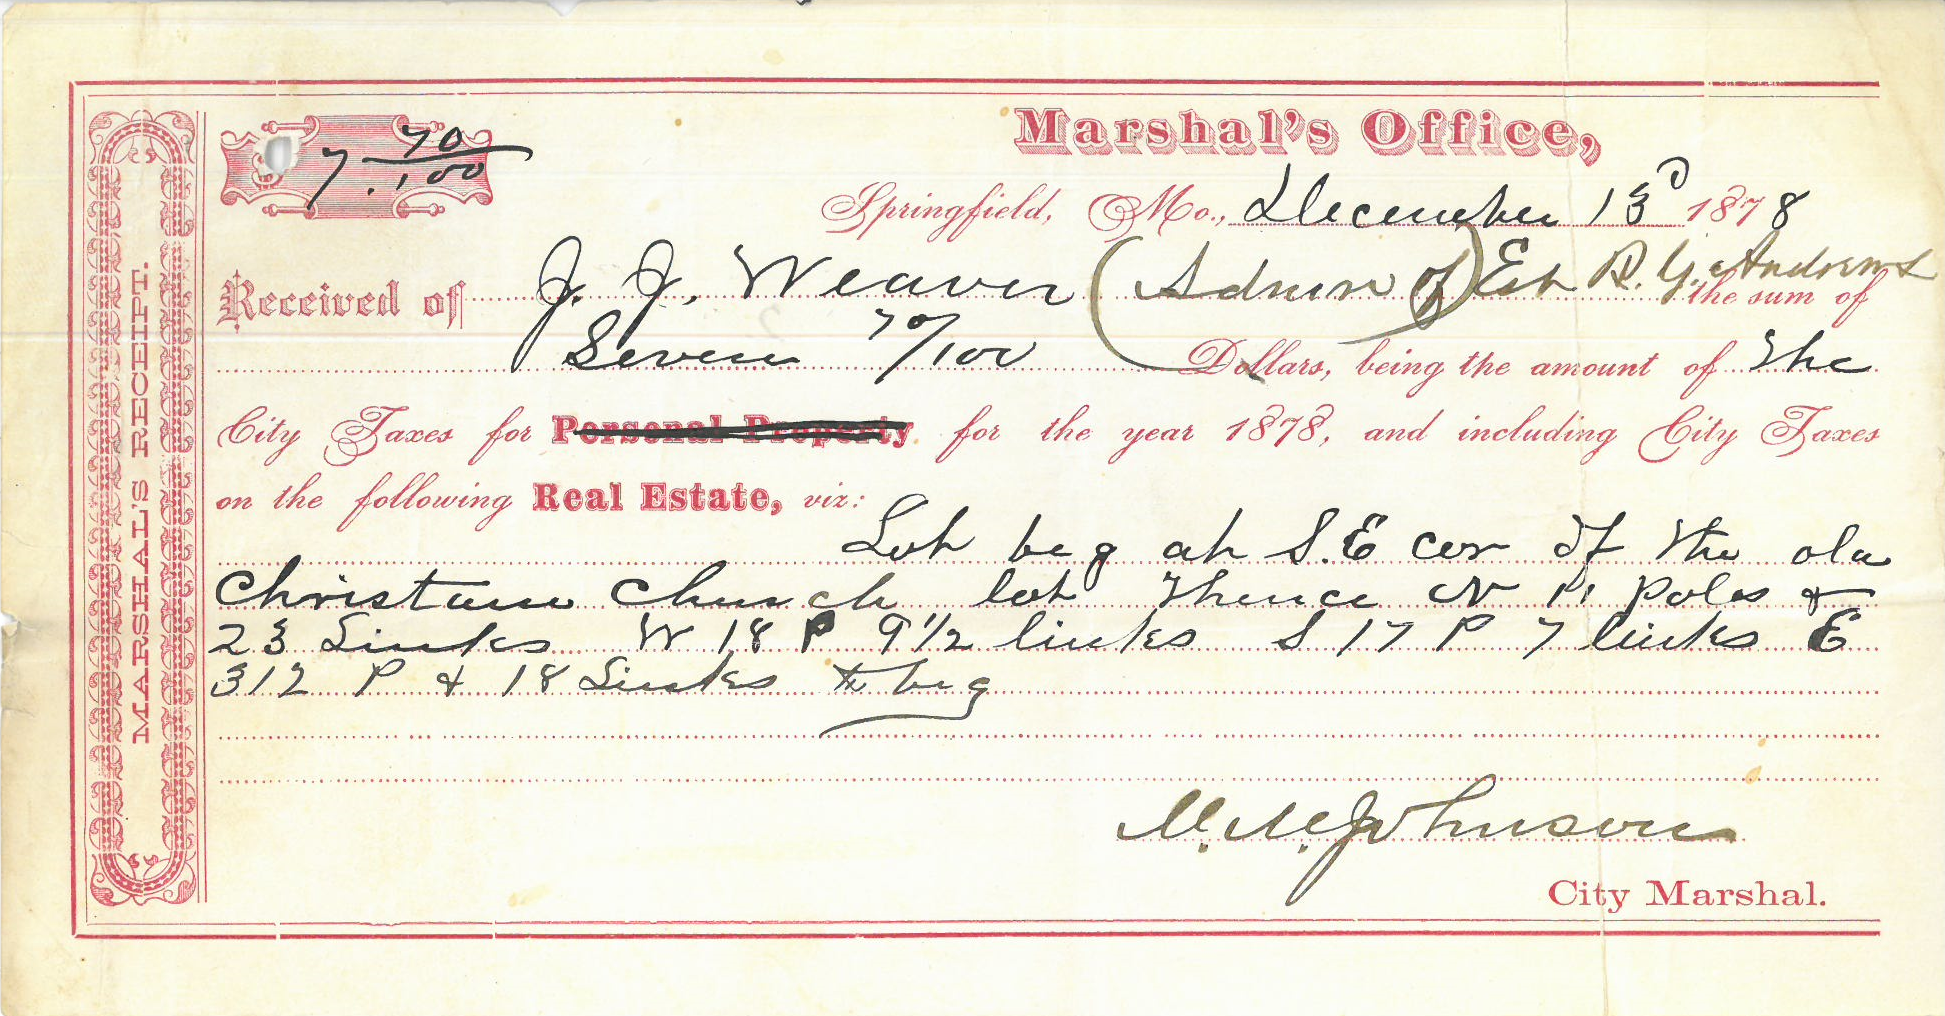 MARSHAL'S RECEIPT.
$ 7.70/100
Marshal's Office,
Springfield, Mo., December 13 1878
Received of J. J. Weaver (Admr of) Est R. G. Andrews the sum of
Seven 70/100 Dollars, being the amount of The
City Taxes for Personal Property for the year 1878, and including City Taxes
on the following Real Estate, viz:
Lot beg at S.E cor of the old
Christian Church lot Thence N poles &
23 Links W 18 P 9 1/2 links S 17 P 7 links E
312 P & 18 Links to beg
M. M. Johnson
City Marshal.